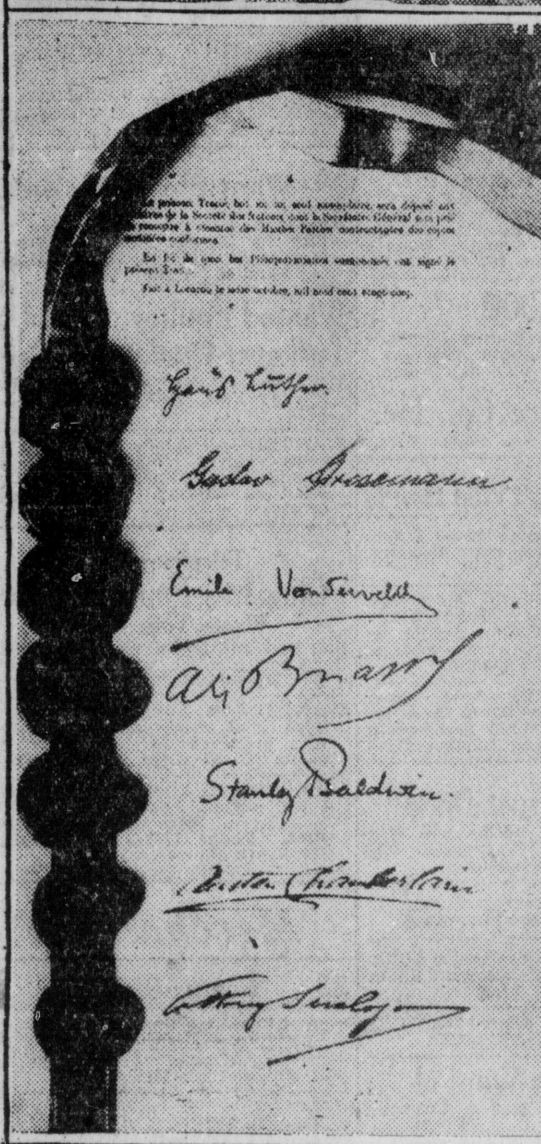 Le présent Traité, fait en un seul exemplaire, sera déposé aux
archives de la Société des Nations dont le Secrétaire Général sera prié
de remettre à chacune des Hautes Parties contractantes des copies
certifiées conformes.
En foi de quoi les Plénipotentiaires susnommés ont signé le
présent Traité.
Fait à Locarno le seize octobre, mil neuf cent vingt-cinq.
Hans Luther.
Gustav Stresemann
Emile Vandervelde
Ari Briand
Stanley Baldwin.
Austen Chamberlain
Vittorio Scialoja